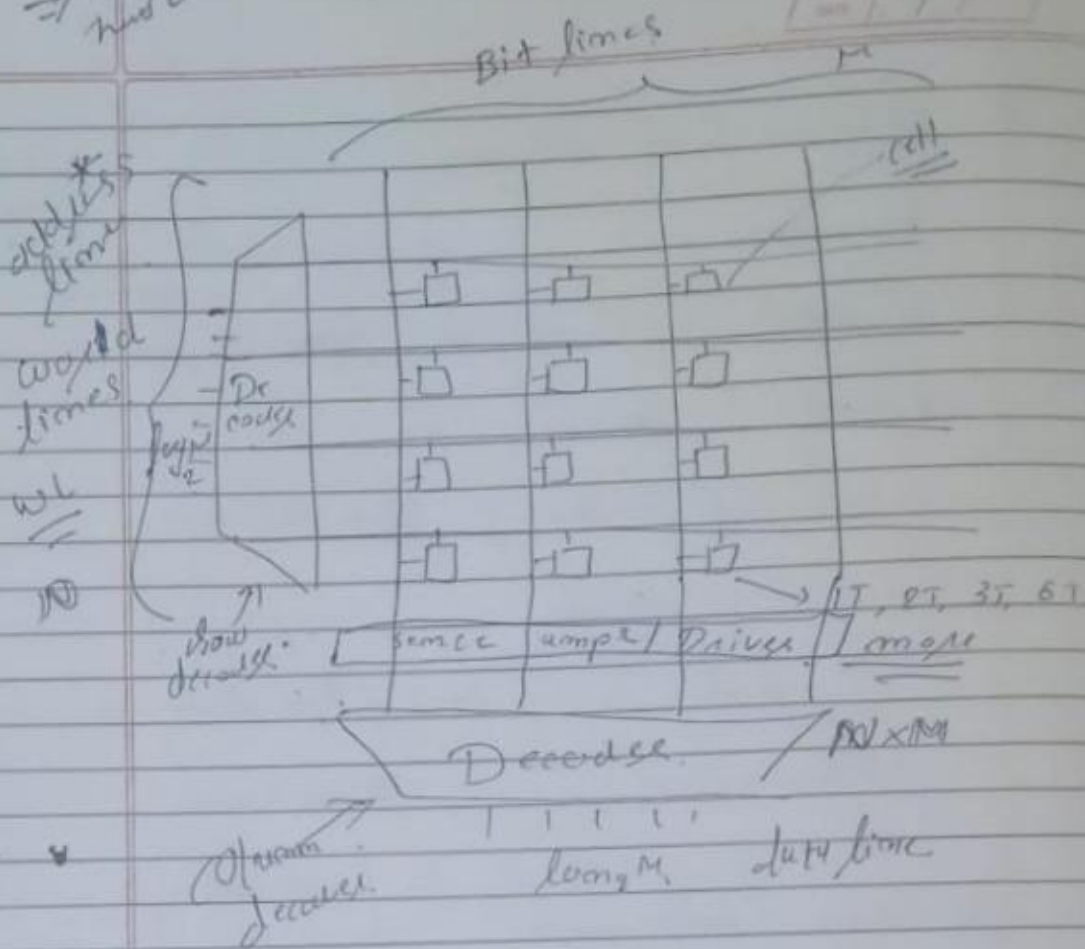 Bit lines
M
cell
address
line
word
lines
WL
N
De
coder
row
decoder
1T, 2T, 3T, 6T
more
sence ampl / Driver
Decoder
N×M
column
decoder
log₂M
data line